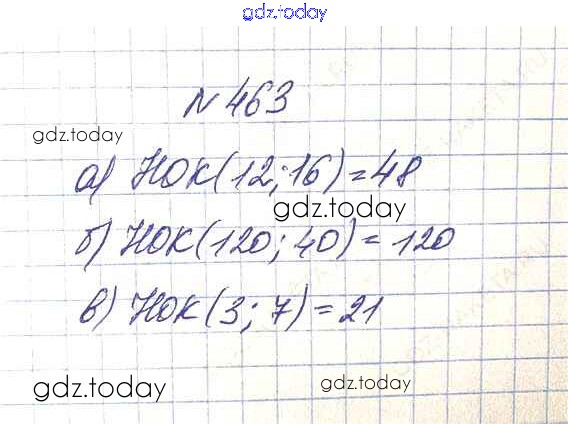 gdz.today
№ 463
gdz.today
а) НОК(12;16)=48
gdz.today
б) НОК(120; 40)=120
в) НОК(3; 7)=21
gdz.today
gdz.today